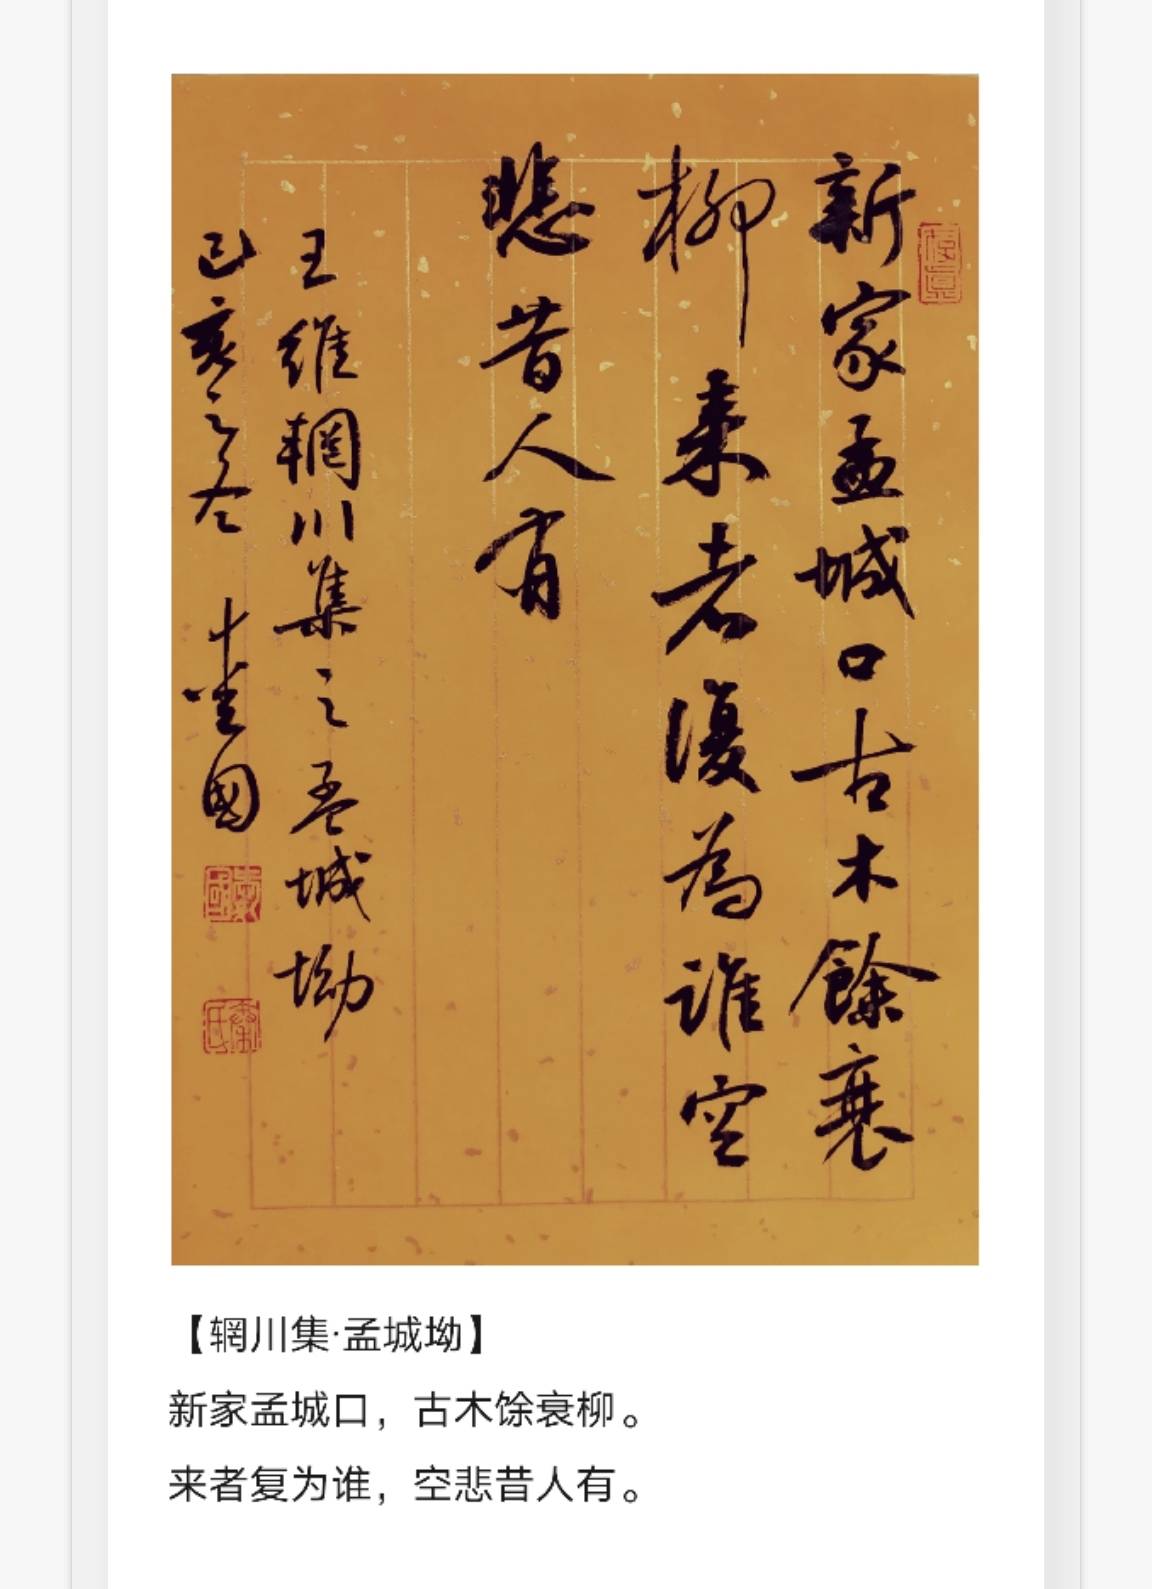 新家孟城口古木餘衰
柳来者復為谁空
悲昔人有
王維輞川集之孟城坳
己亥之冬 志國
【辋川集·孟城坳】
新家孟城口，古木馀衰柳。
来者复为谁，空悲昔人有。